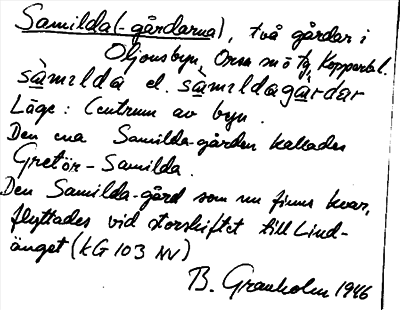 Samilda(-gårdarna), två gårdar i
Oljonsbyn, Orsa sn ö tg, Kopparb.l.
sàmılda el. sàmıldagàrdar
Läge: Centrum av byn.
Den ena Samilda-gården kallades
Gretör-Samilda.
Den Samilda-gård som nu finns kvar,
flyttades vid storskiftet till Lind-
änget (KG 103 NV)
B. Granholm 1946